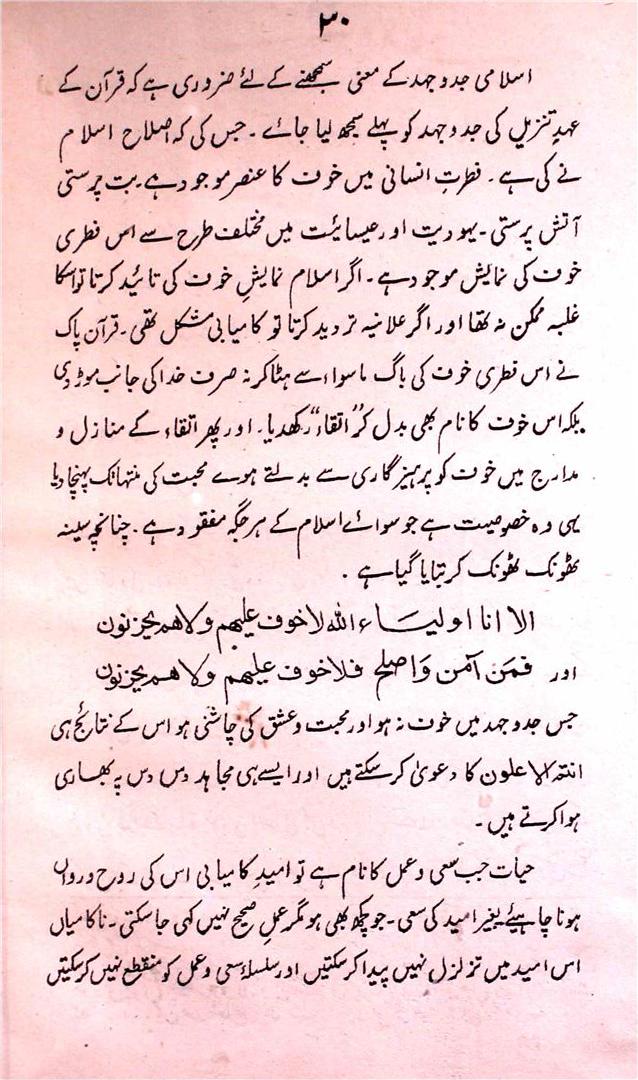 ۳۰
اسلامی جدوجہد کے معنی سمجھنے کے لئے ضروری ہے کہ قرآن کے
عہدِ تنزیل کی جدوجہد کو پہلے سمجھ لیا جائے ۔ جس کی کہ اصلاح اسلام
نے کی ہے ۔ فطرتِ انسانی میں خوف کا عنصر موجود ہے ۔ بت پرستی
آتش پرستی ۔ یہودیت اور عیسائیت میں مختلف طرح سے اس فطری
خوف کی نمایش موجود ہے ۔ اگر اسلام نمایشِ خوف کی تائید کرتا تو اسکا
غلبہ ممکن نہ تھا اور اگر علانیہ تردید کرتا تو کامیابی مشکل تھی ۔ قرآن پاک
نے اس فطری خوف کی باگ ماسواء سے ہٹا کر نہ صرف خدا کی جانب موڑ دی
بلکہ اس خوف کا نام بھی بدل کر ”اتقاء“ رکھدیا ۔ اور پھر اتقاء کے منازل و
مدارج میں خوف کو پرہیزگاری سے بدلتے ہوے محبت کی منتہا تک پہنچا دیا
یہی وہ خصوصیت ہے جو سوائے اسلام کے ہر جگہ مفقود ہے ۔ چنانچہ سینہ
ٹھونک ٹھونک کر بتایا گیا ہے ۔
الا انا اولیاء اللہ لا خوف علیہم ولاہم یحزنون
اور فمن آمن واصلح فلا خوف علیہم ولاہم یحزنون
جس جدوجہد میں خوف نہ ہو اور محبت و عشق کی چاشنی ہو اس کے نتائج ہی
انتم الاعلون کا دعویٰ کر سکتے ہیں اور ایسے ہی مجاہد دس دس پہ بھاری
ہوا کرتے ہیں ۔
حیات جب سعی و عمل کا نام ہے تو امیدِ کامیابی اس کی روح و رواں
ہونا چاہیئے بغیر امید کی سعی ۔ جو کچھ بھی ہو مگر عملِ صحیح نہیں کہی جا سکتی ۔ ناکامیاں
اس امید میں تزلزل نہیں پیدا کر سکتیں اور سلسلۂ سعی و عمل کو منقطع نہیں کر سکتیں